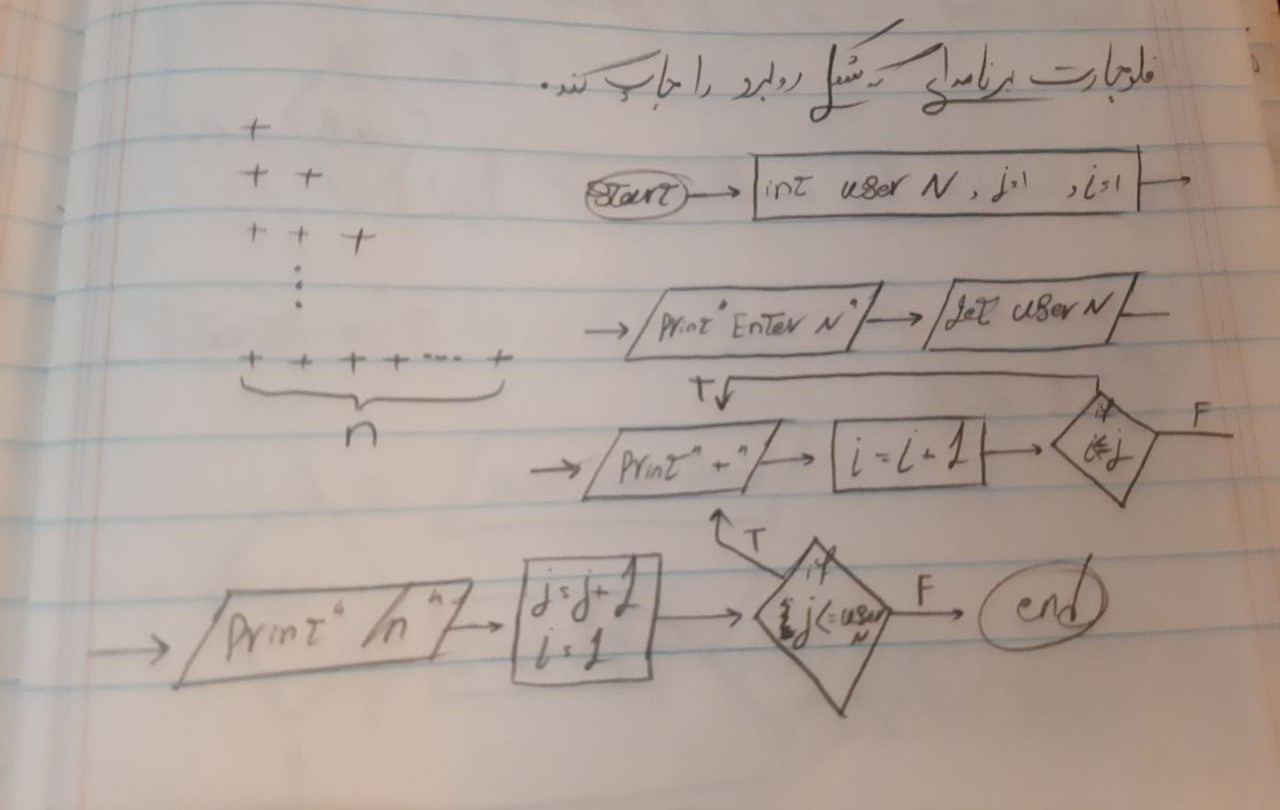 فلوچارت برنامه‌ای که شکل روبرو را چاپ کند.
+
+ +
+ + +
⋮
+ + + + ---- +
n
Start
int user N, j=1 , i=1
Print "Enter N"
Get user N
T
Print "+"
i = i + 1
if
i<=j
F
Print "/n"
j = j + 1
i = 1
T
if
j<=user
N
F
end